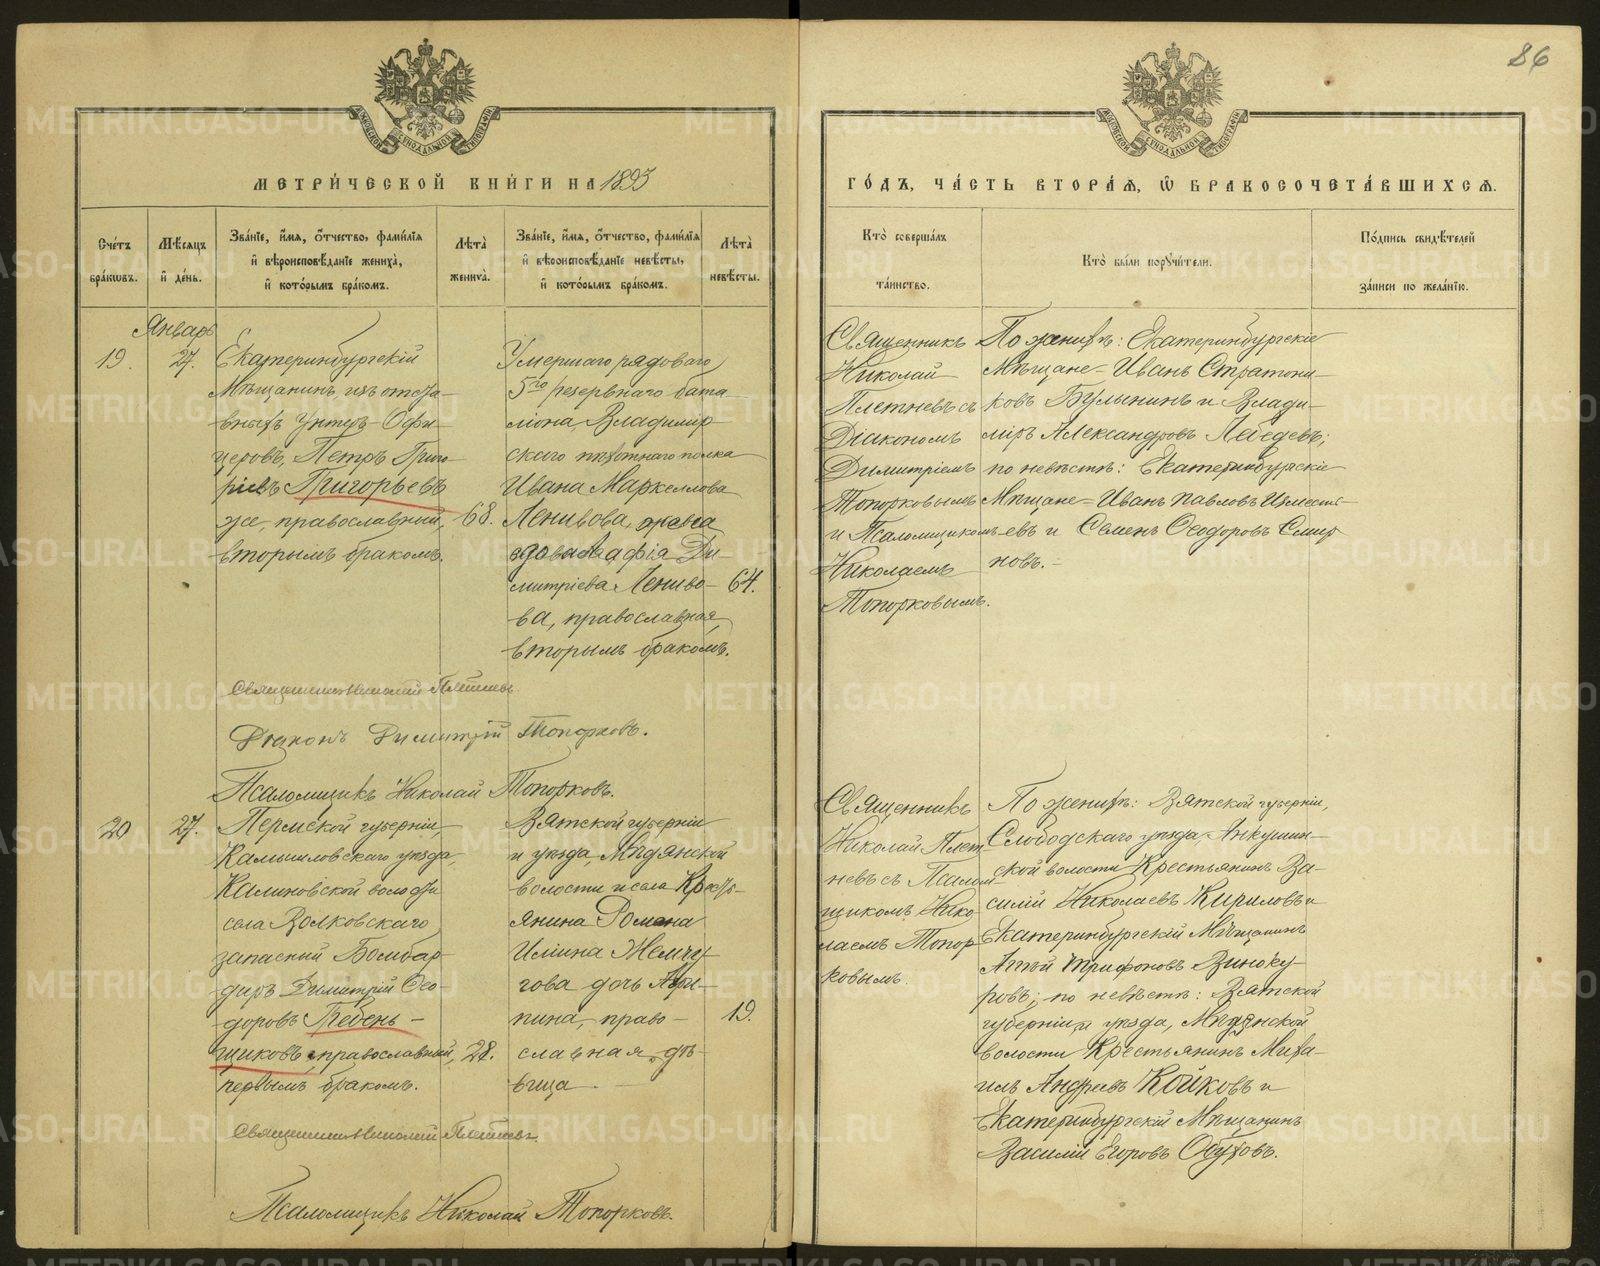 86
МЕТРИ́ЧЕСКОЙ КНИ́ГИ НА 1893
ГО́ДЪ, ЧА́СТЬ ВТОРА́Я, Ѡ БРАКОСОЧЕТА́ВШИХСЯ.
Сче́тъ бра́кѡвъ.
Мѣ́сяцъ и҆ де́нь.
Зва́нїе, и҆́мѧ, ѻ҆́тчество, фами́лїѧ
и҆ вѣроисповѣ́данїе жениха̀,
и҆ кото́рымъ бра́комъ.
Лѣта̀ жениха̀.
Зва́нїе, и҆́мѧ, ѻ҆́тчество, фами́лїѧ
и҆ вѣроисповѣ́данїе невѣ́сты,
и҆ кото́рымъ бра́комъ.
Лѣта̀ невѣ́сты.
Кто̀ соверша́лъ та́инство.
Кто̀ бы́ли порꙋчи́тели.
По́дпись свидѣ́телей за́писи по жела́нїю.
Январь
19. 27.
Екатеринбургскій
Мѣщанинъ, изъ отста-
вныхъ Унтеръ-Офи-
церовъ, Петръ Григо-
рьевъ Григорьевъ
же, православный,
вторымъ бракомъ.
68.
Умершаго рядоваго
5го резервнаго бата-
ліона Владимір-
скаго пѣхотнаго полка
Ивана Маркеллова
Ленивова, жена
вдова Софія Ди-
митріева Лениво-
ва, православная,
вторымъ бракомъ.
64.
Священникъ
Николай
Плетневъ съ
Діакономъ
Димитріемъ
Топорковымъ
и Псаломщикомъ
Николаемъ
Топорковымъ.
По женихѣ: Екатеринбургскіе
Мѣщане - Иванъ Стратони-
ковъ Булынинъ и Влади-
міръ Александровъ Лебедевъ;
по невѣстѣ: Екатеринбургскіе
Мѣщане - Иванъ Павловъ Измѣст-
евъ и Семенъ Ѳеодоровъ Смир-
новъ.-
Священникъ Николай Плетневъ.
Діаконъ Димитрій Топорковъ.
Псаломщикъ Николай Топорковъ.
20 27.
Пермской губерніи,
Камышловскаго уѣзда,
Калиновской волости
села Волковскаго
запасный Бомбар-
диръ Димитрій Ѳео-
доровъ Гребень-
щиковъ, православный,
первымъ бракомъ.
28.
Вятской губерніи
и уѣзда, Мѣдянской
волости и села Кресть-
янина Романа
Ильина Жемчу-
гова дочь Агри-
пина, право-
славная, дѣ-
вица.
19.
Священникъ
Николай Плет-
невъ съ Псалом-
щикомъ Нико-
лаемъ Топор-
ковымъ.
По женихѣ: Вятской губерніи,
Слободскаго уѣзда, Анкушин-
ской волости Крестьянинъ Ва-
силій Николаевъ Кириловъ и
Екатеринбургскій Мѣщанинъ
Агѣй Трифоновъ Виноку-
ровъ; по невѣстѣ: Вятской
губерніи и уѣзда, Мѣдянской
волости Крестьянинъ Миха-
илъ Андреевъ Койковъ и
Екатеринбургскій Мѣщанинъ
Василій Егоровъ Обуховъ.
Священникъ Николай Плетневъ.
Псаломщикъ Николай Топорковъ.